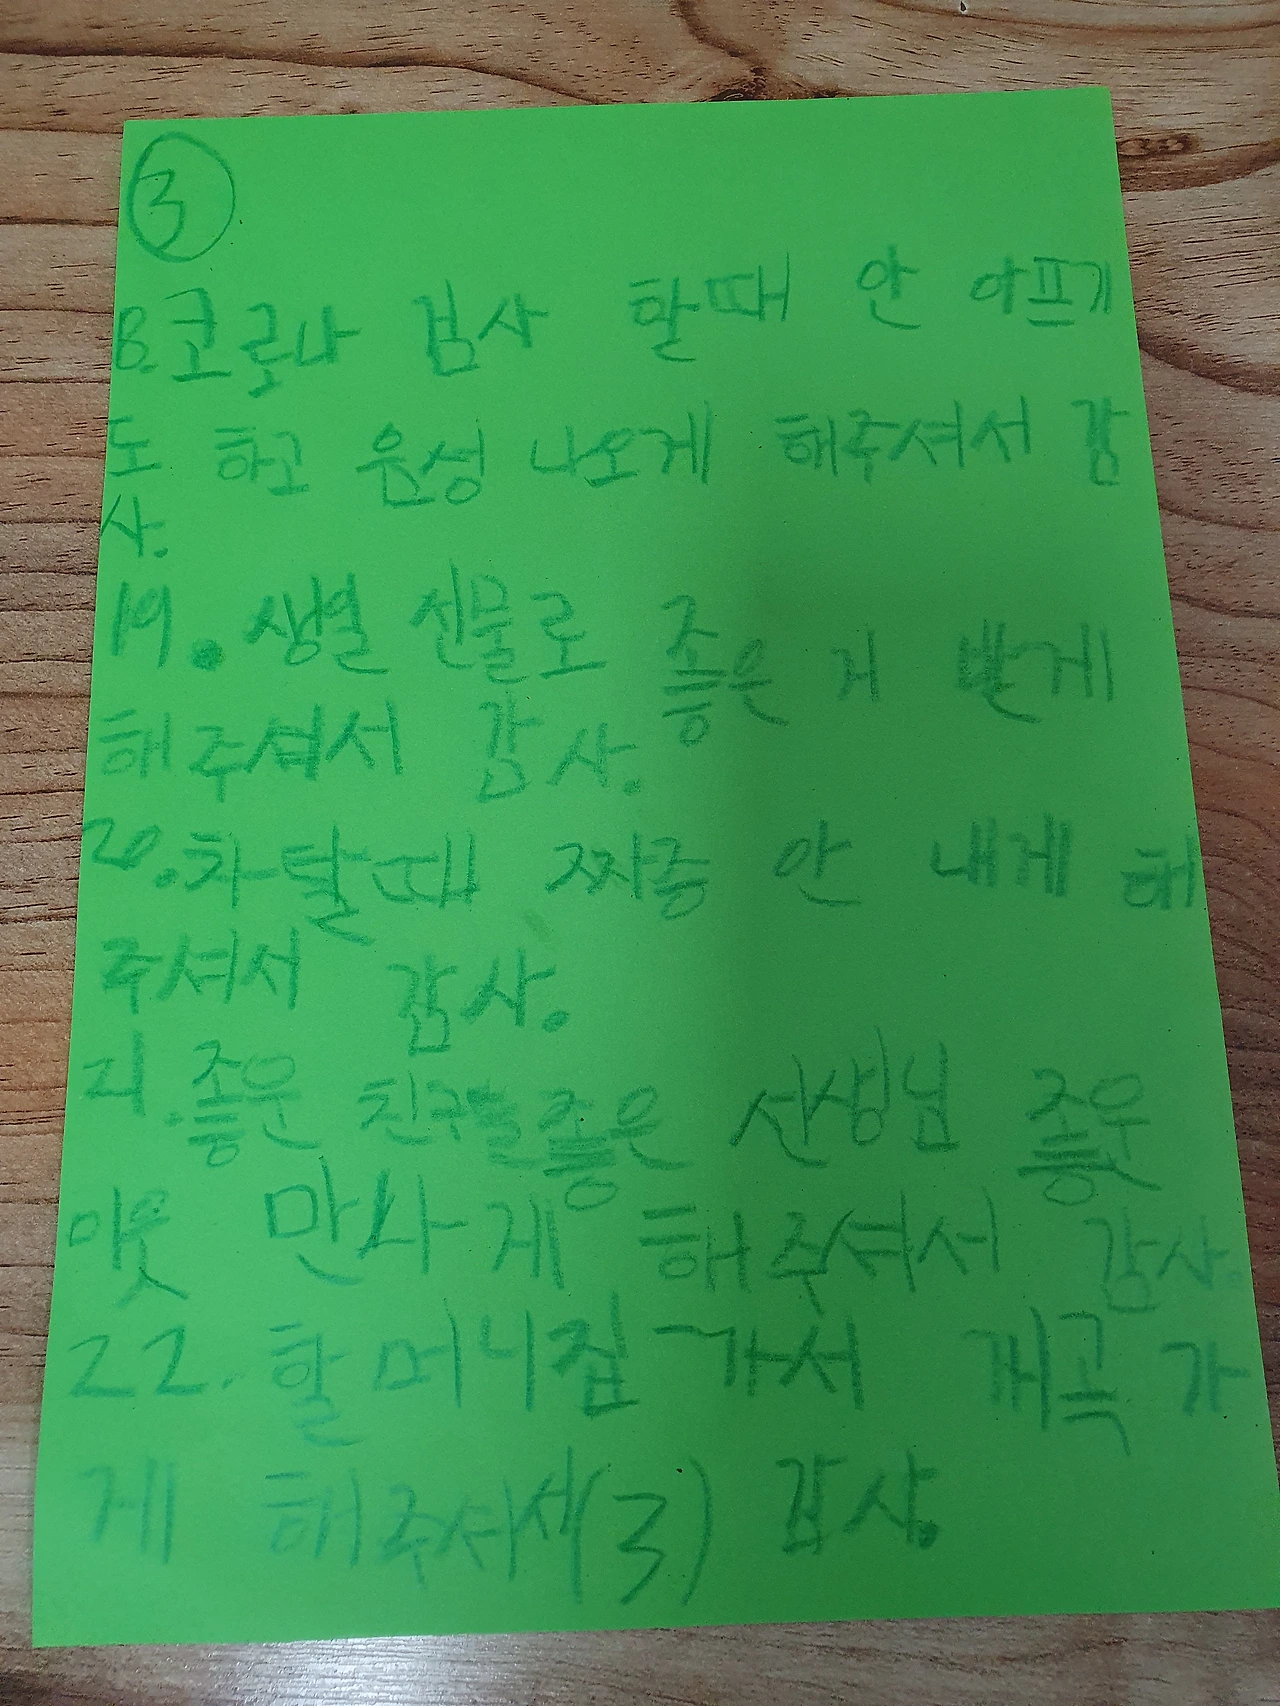 3
8. 코로나 검사 할때 안 아프기
도 하고 음성 나오게 해주셔서 감
사.
19. 생일 선물로 좋은 거 받게
해주셔서 감사.
20. 차탈때 짜증 안 내게 해
주셔서 감사.
21. 좋은 친구들 좋은 선생님 좋은
이웃 만나게 해주셔서 감사.
22. 할머니집 가서 계곡 가
게 해주셔서(3) 감사.